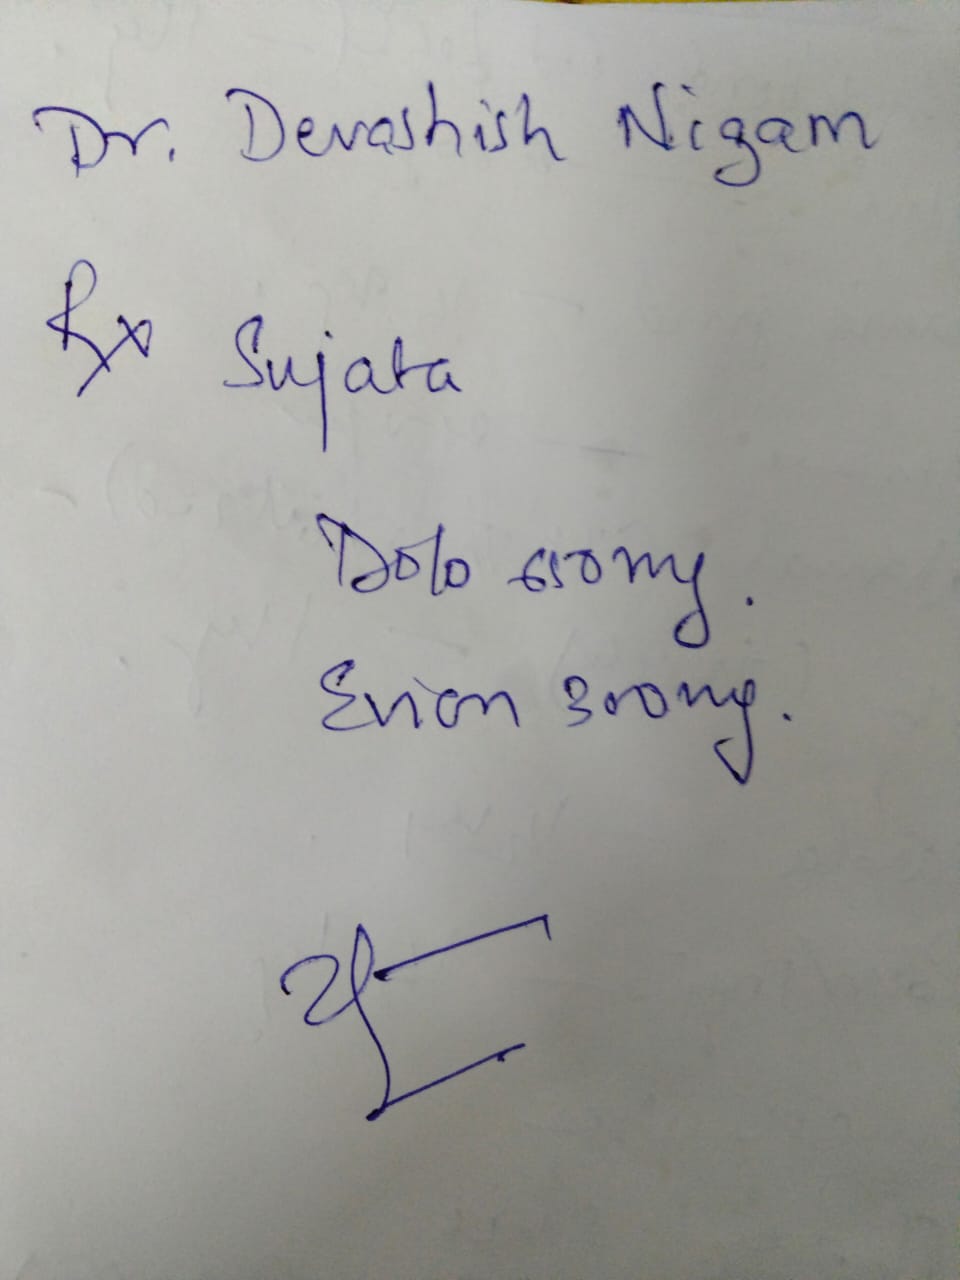 Dr. Devashish Nigam
Rx Sujata
Dolo 650mg.
Evion 300mg.